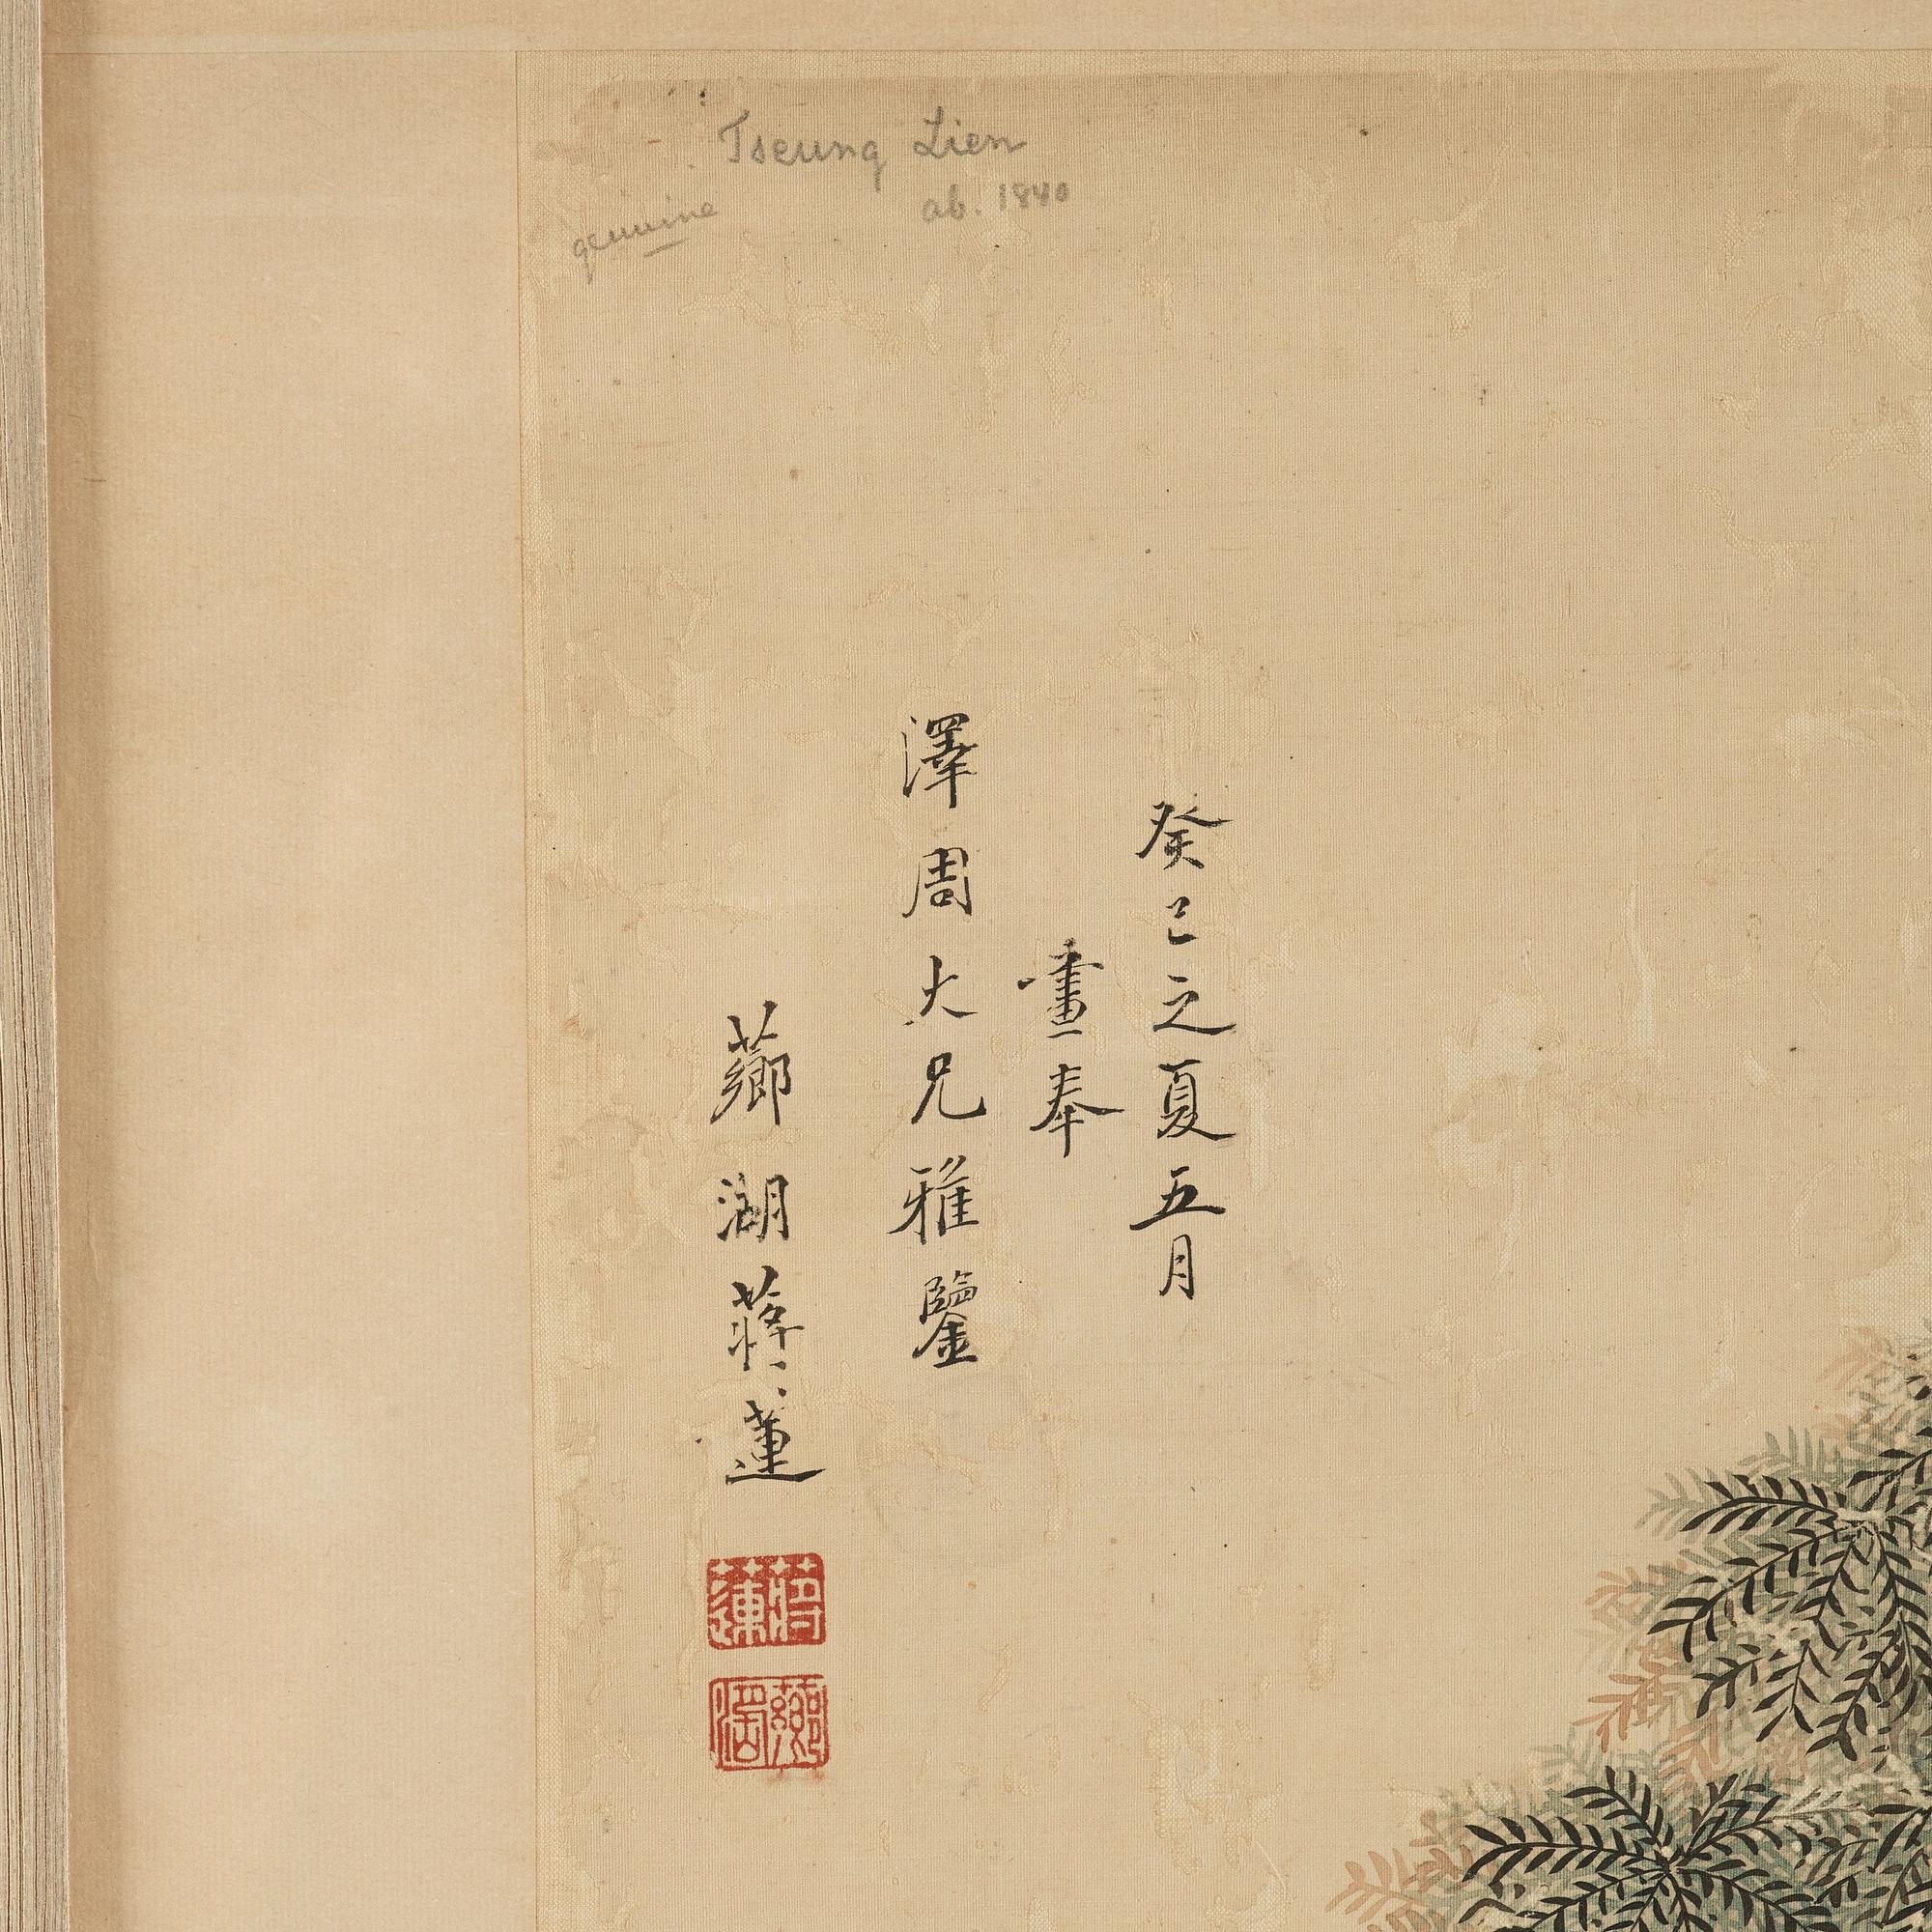 Tseung Lien
ab. 1840
genuine
癸巳之夏五月
畫奉
澤周大兄雅鑒
薌湖蔣蓮
蔣蓮
薌湖